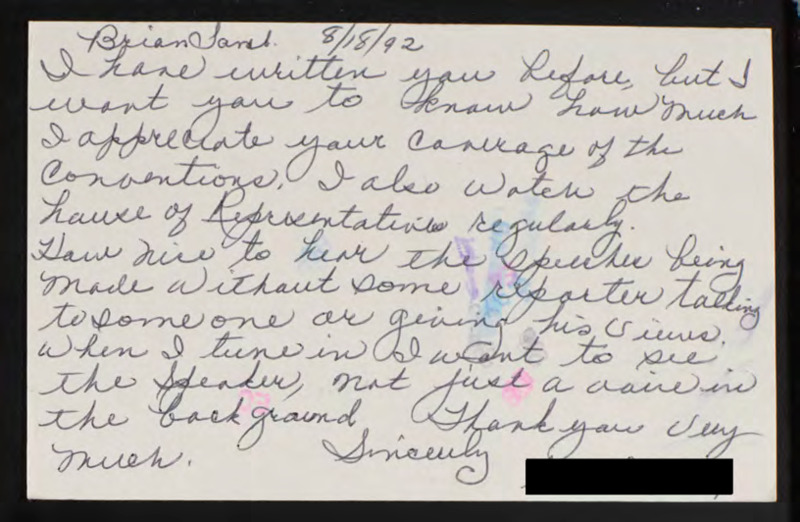 Brian Lamb. 8/18/92
I have written you before, but I
want you to know how much
I appreciate your coverage of the
Conventions. I also watch the
house of Representatives regularly.
How nice to hear the speeches being
made without some reporter talking
to someone or giving his views.
When I tune in I want to see
the speaker, not just a voice in
the background Thank you very
much. Sincerely